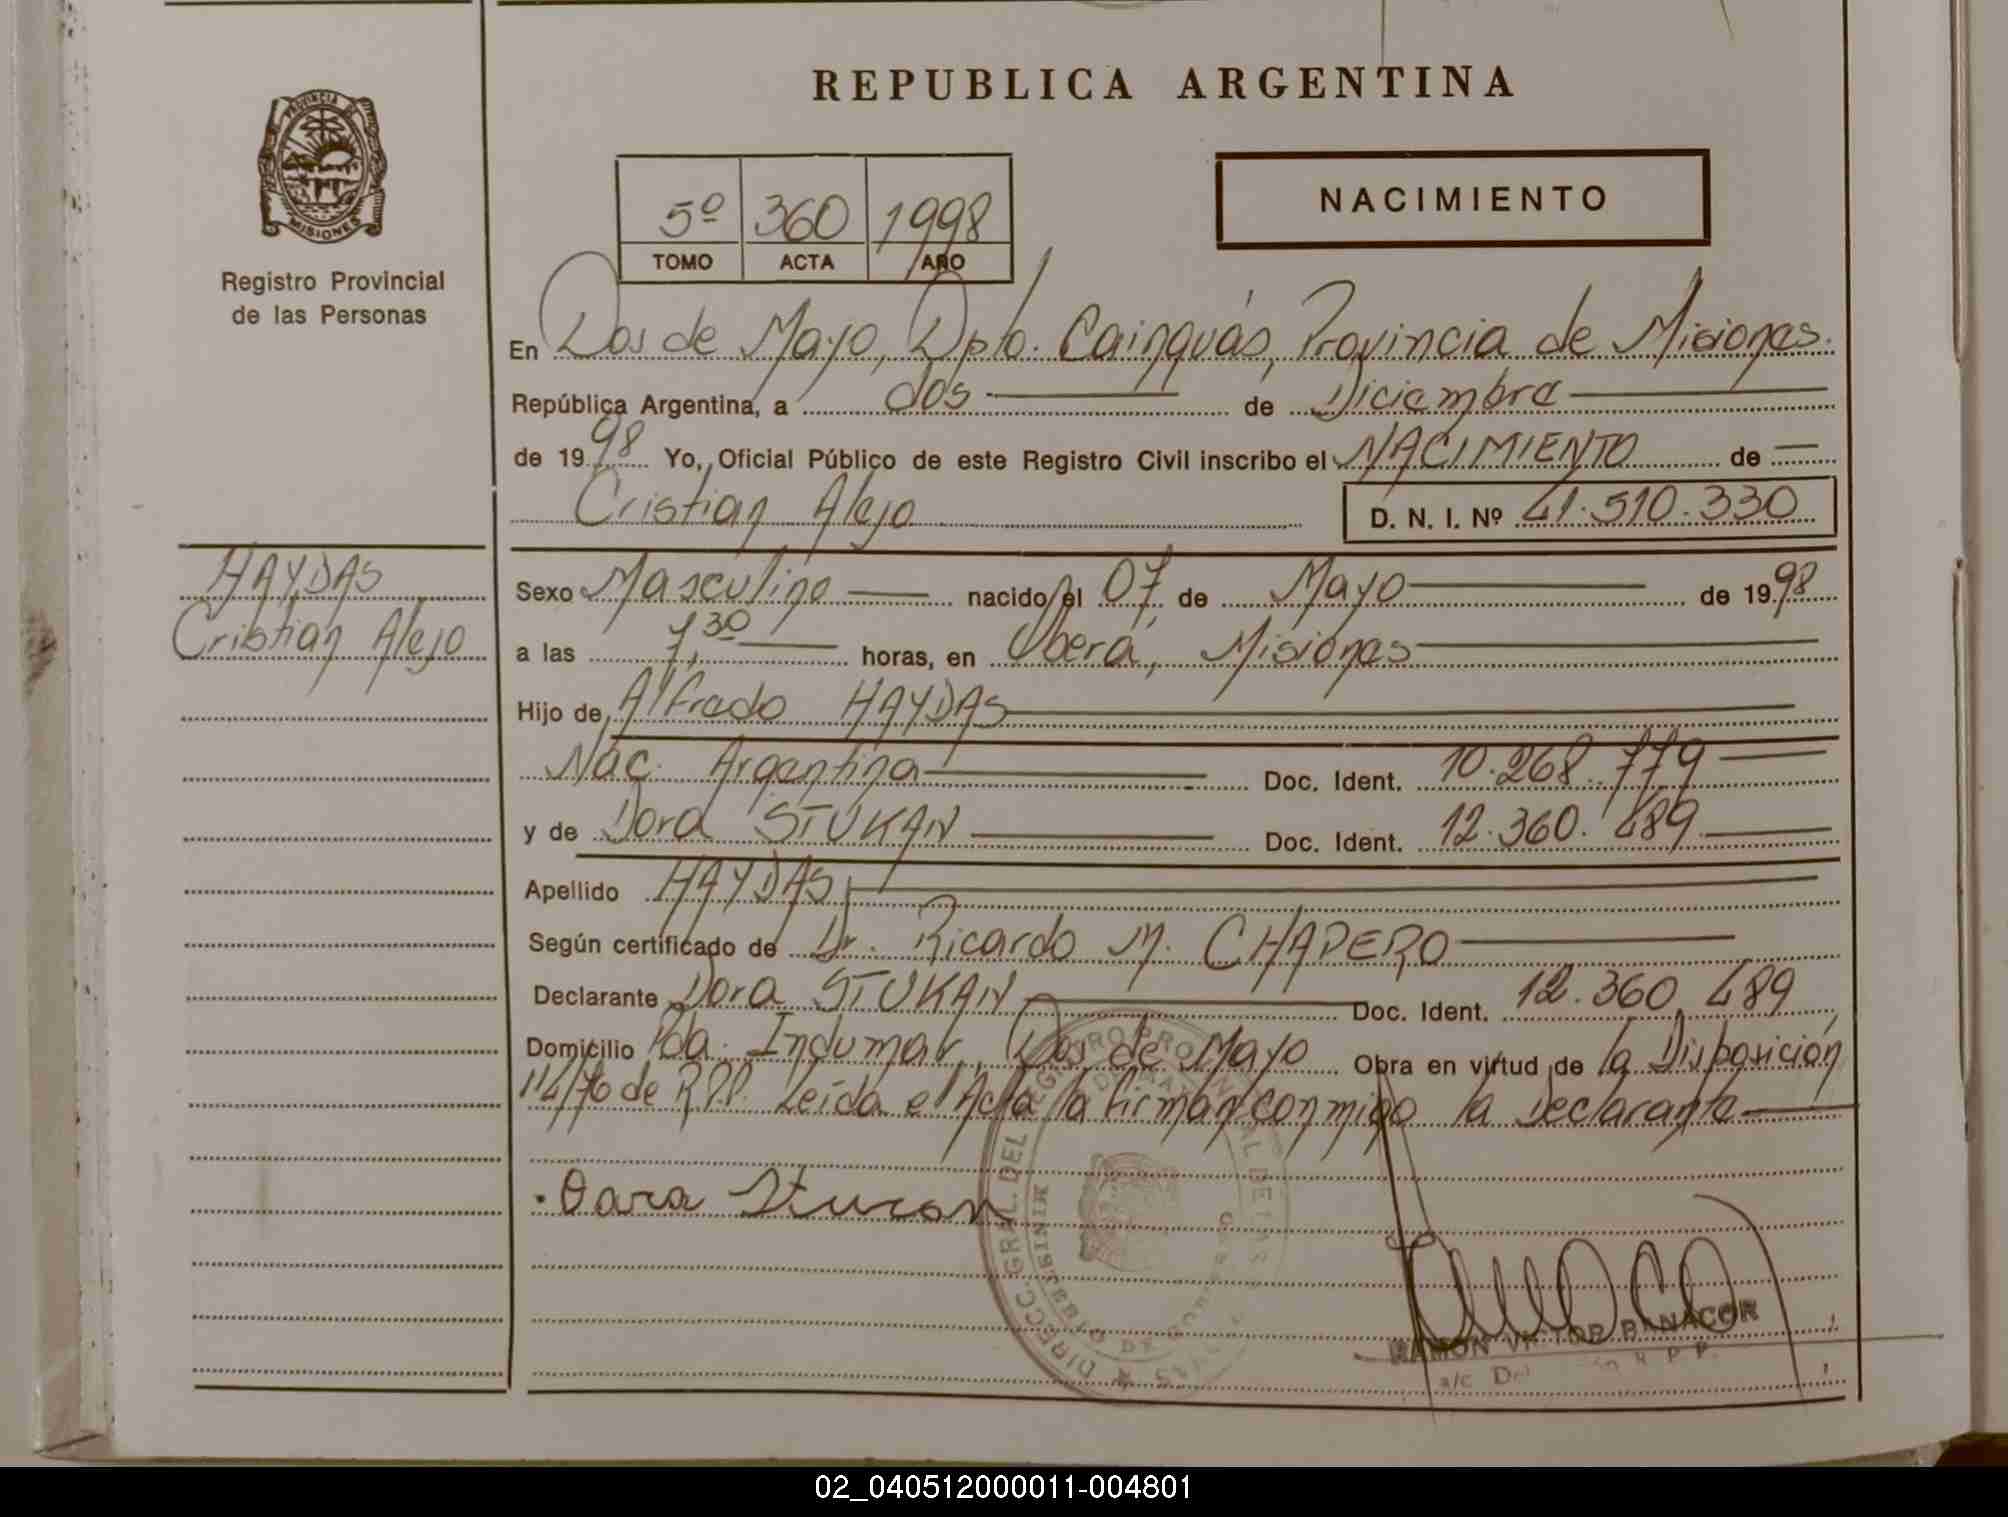 REPUBLICA ARGENTINA
PROVINCIA DE
MISIONES
Registro Provincial
de las Personas
5º 360 1998
TOMO ACTA AÑO
NACIMIENTO
En Dos de Mayo, Dpto. Cainguás, Provincia de Misiones.
República Argentina, a dos de Diciembre
de 1998 Yo, Oficial Público de este Registro Civil inscribo el NACIMIENTO de
Cristian Alejo D. N. I. Nº 41.510.330
HAYDAS
Cristian Alejo
Sexo Masculino nacido el 07 de Mayo de 1998
a las 7,30 horas, en Oberá, Misiones
Hijo de Alfredo HAYDAS
Nac. Argentina Doc. Ident. 10.268.779
y de Dora STUKAN Doc. Ident. 12.360.489
Apellido HAYDAS
Según certificado de Dr. Ricardo M. CHAPERO
Declarante Dora STUKAN Doc. Ident. 12.360.489
Domicilio Pda. Indumar, Dos de Mayo Obra en virtud de la Disposición
114/76 de R.P.P. Leída el Acta la firman conmigo la Declarante
DIRECC. GRAL. DEL REGISTRO PROVINCIAL DE LAS
MINISTERIO DE GOBIERNO
RAMON VICTOR PANACOR
a/c R. P. P.
02_040512000011-004801